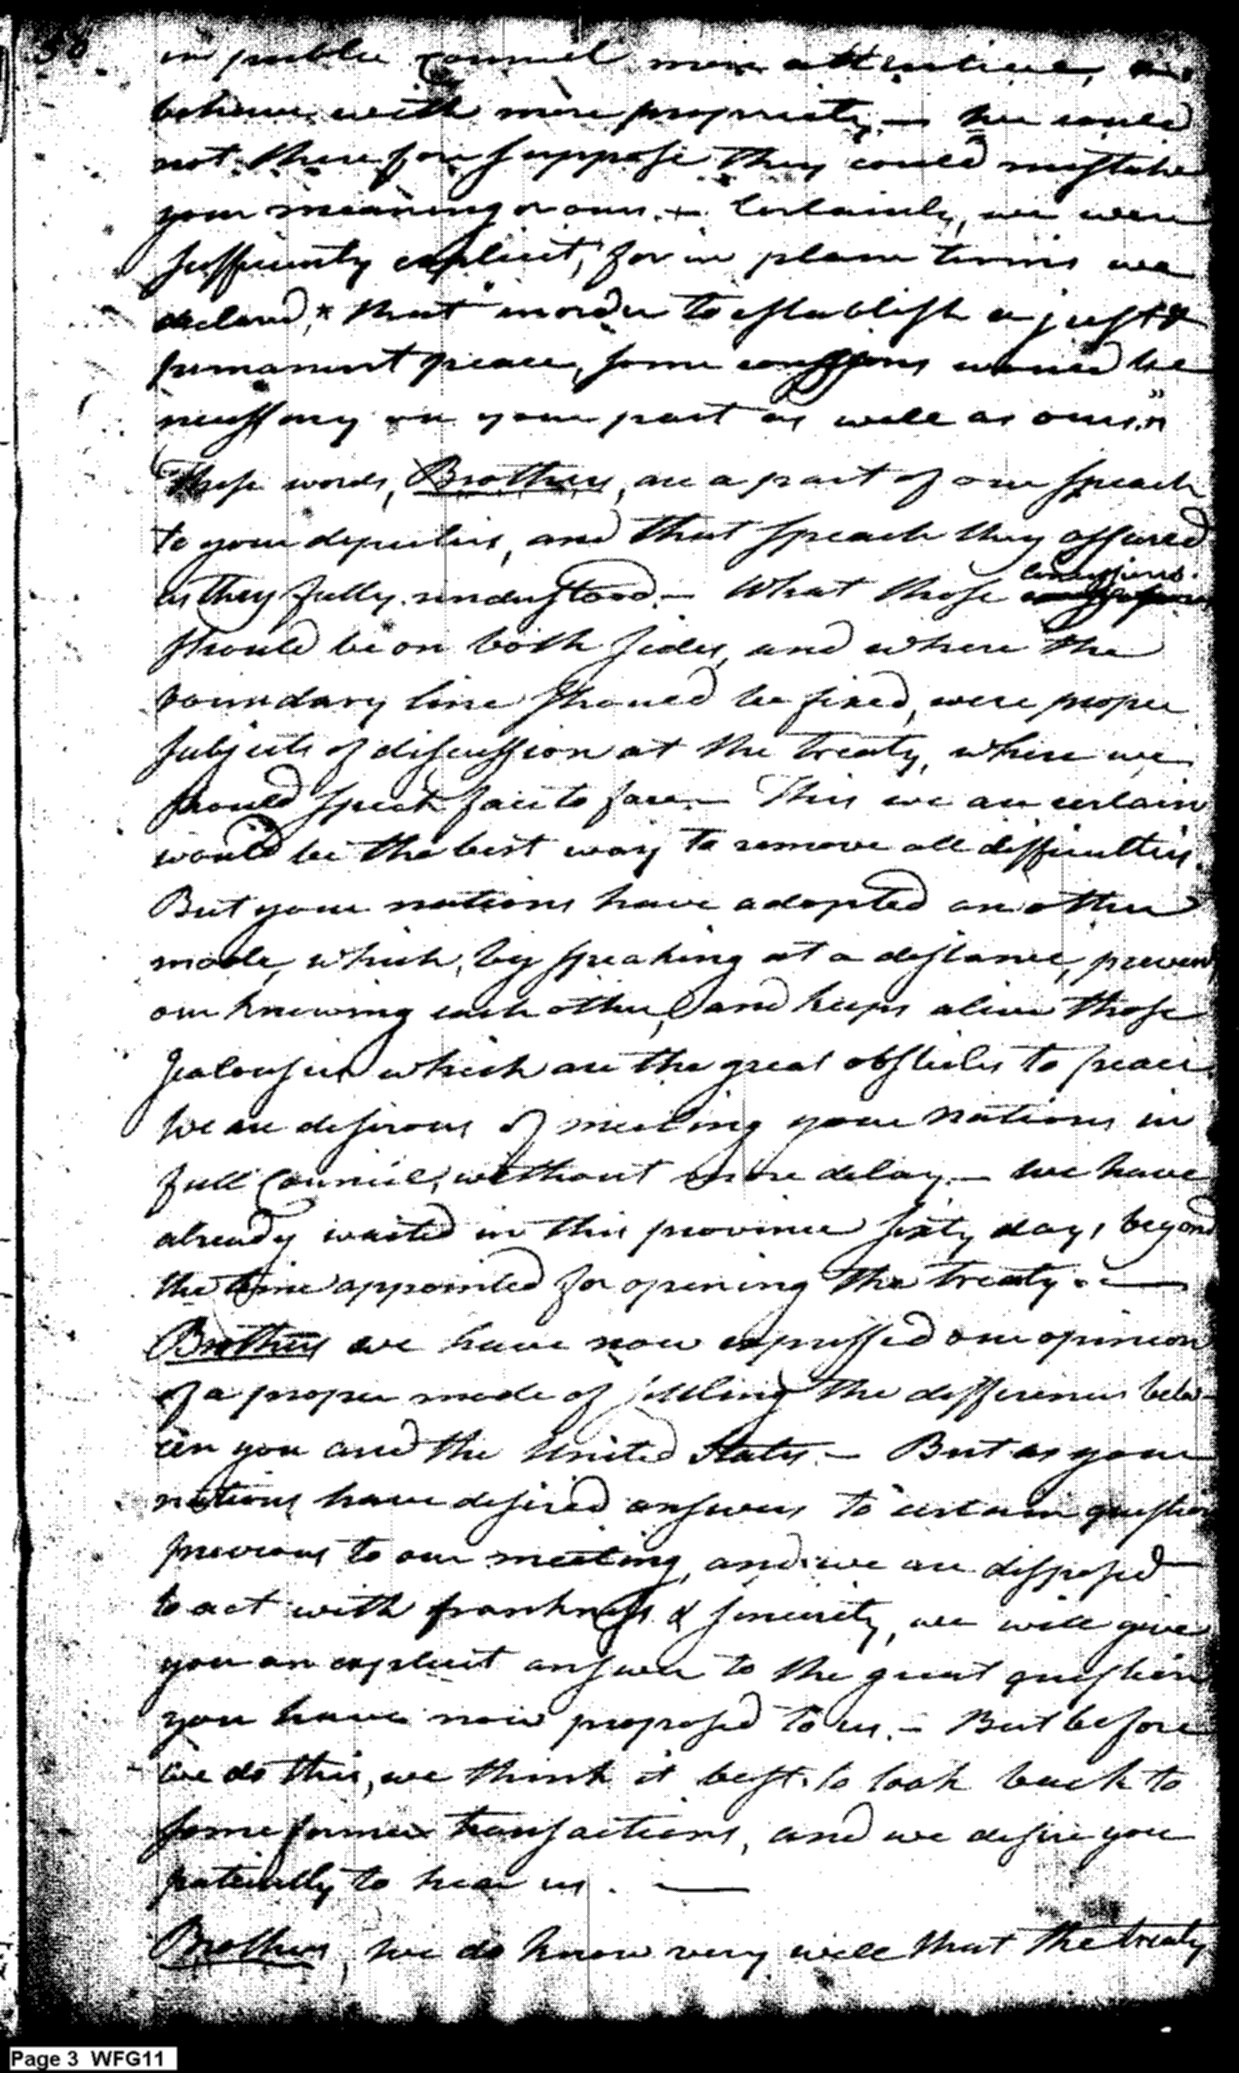 in public Council more attentive, or
behave with more propriety — We could
not therefore suppose they could mistake
your meaning or ours. + Certainly, we were
sufficiently explicit, for in plain terms we
declared, * that "in order to establish a just &
permanent peace, some conssions would be
necessary on your part as well as ours."
These words, Brothers, are a part of our speech
to your deputies, and that speech they assured
us they fully understood. — What those concessions
should be on both sides, and where the
boundary line should be fixed, were proper
subjects of discussion at the treaty, where we
should speak face to face. — This we are certain
would be the best way to remove all difficulties.
But your nations have adopted an other
mode, which, by speaking at a distance, prevents
our knowing each other, and keeps alive those
Jealousies which are the great obstacles to peace
We are desirous of meeting your nations in
full Council, without more delay. — We have
already waited in this province sixty days beyond
the time appointed for opening the treaty. —
Brothers we have now expressed our opinion
of a proper mode of settling the differences betw-
een you and the United States. — But as your
nations have desired answers to certain question
previous to our meeting, and we are disposed
to act with frankness & sincerity, we will give
you an explicit answer to the great question
you have now proposed to us. — But before
we do this, we think it best to look back to
some former transactions, and we desire you
patiently to hear us. —
Brothers, We do know very well that the treaty
Page 3 WFG11